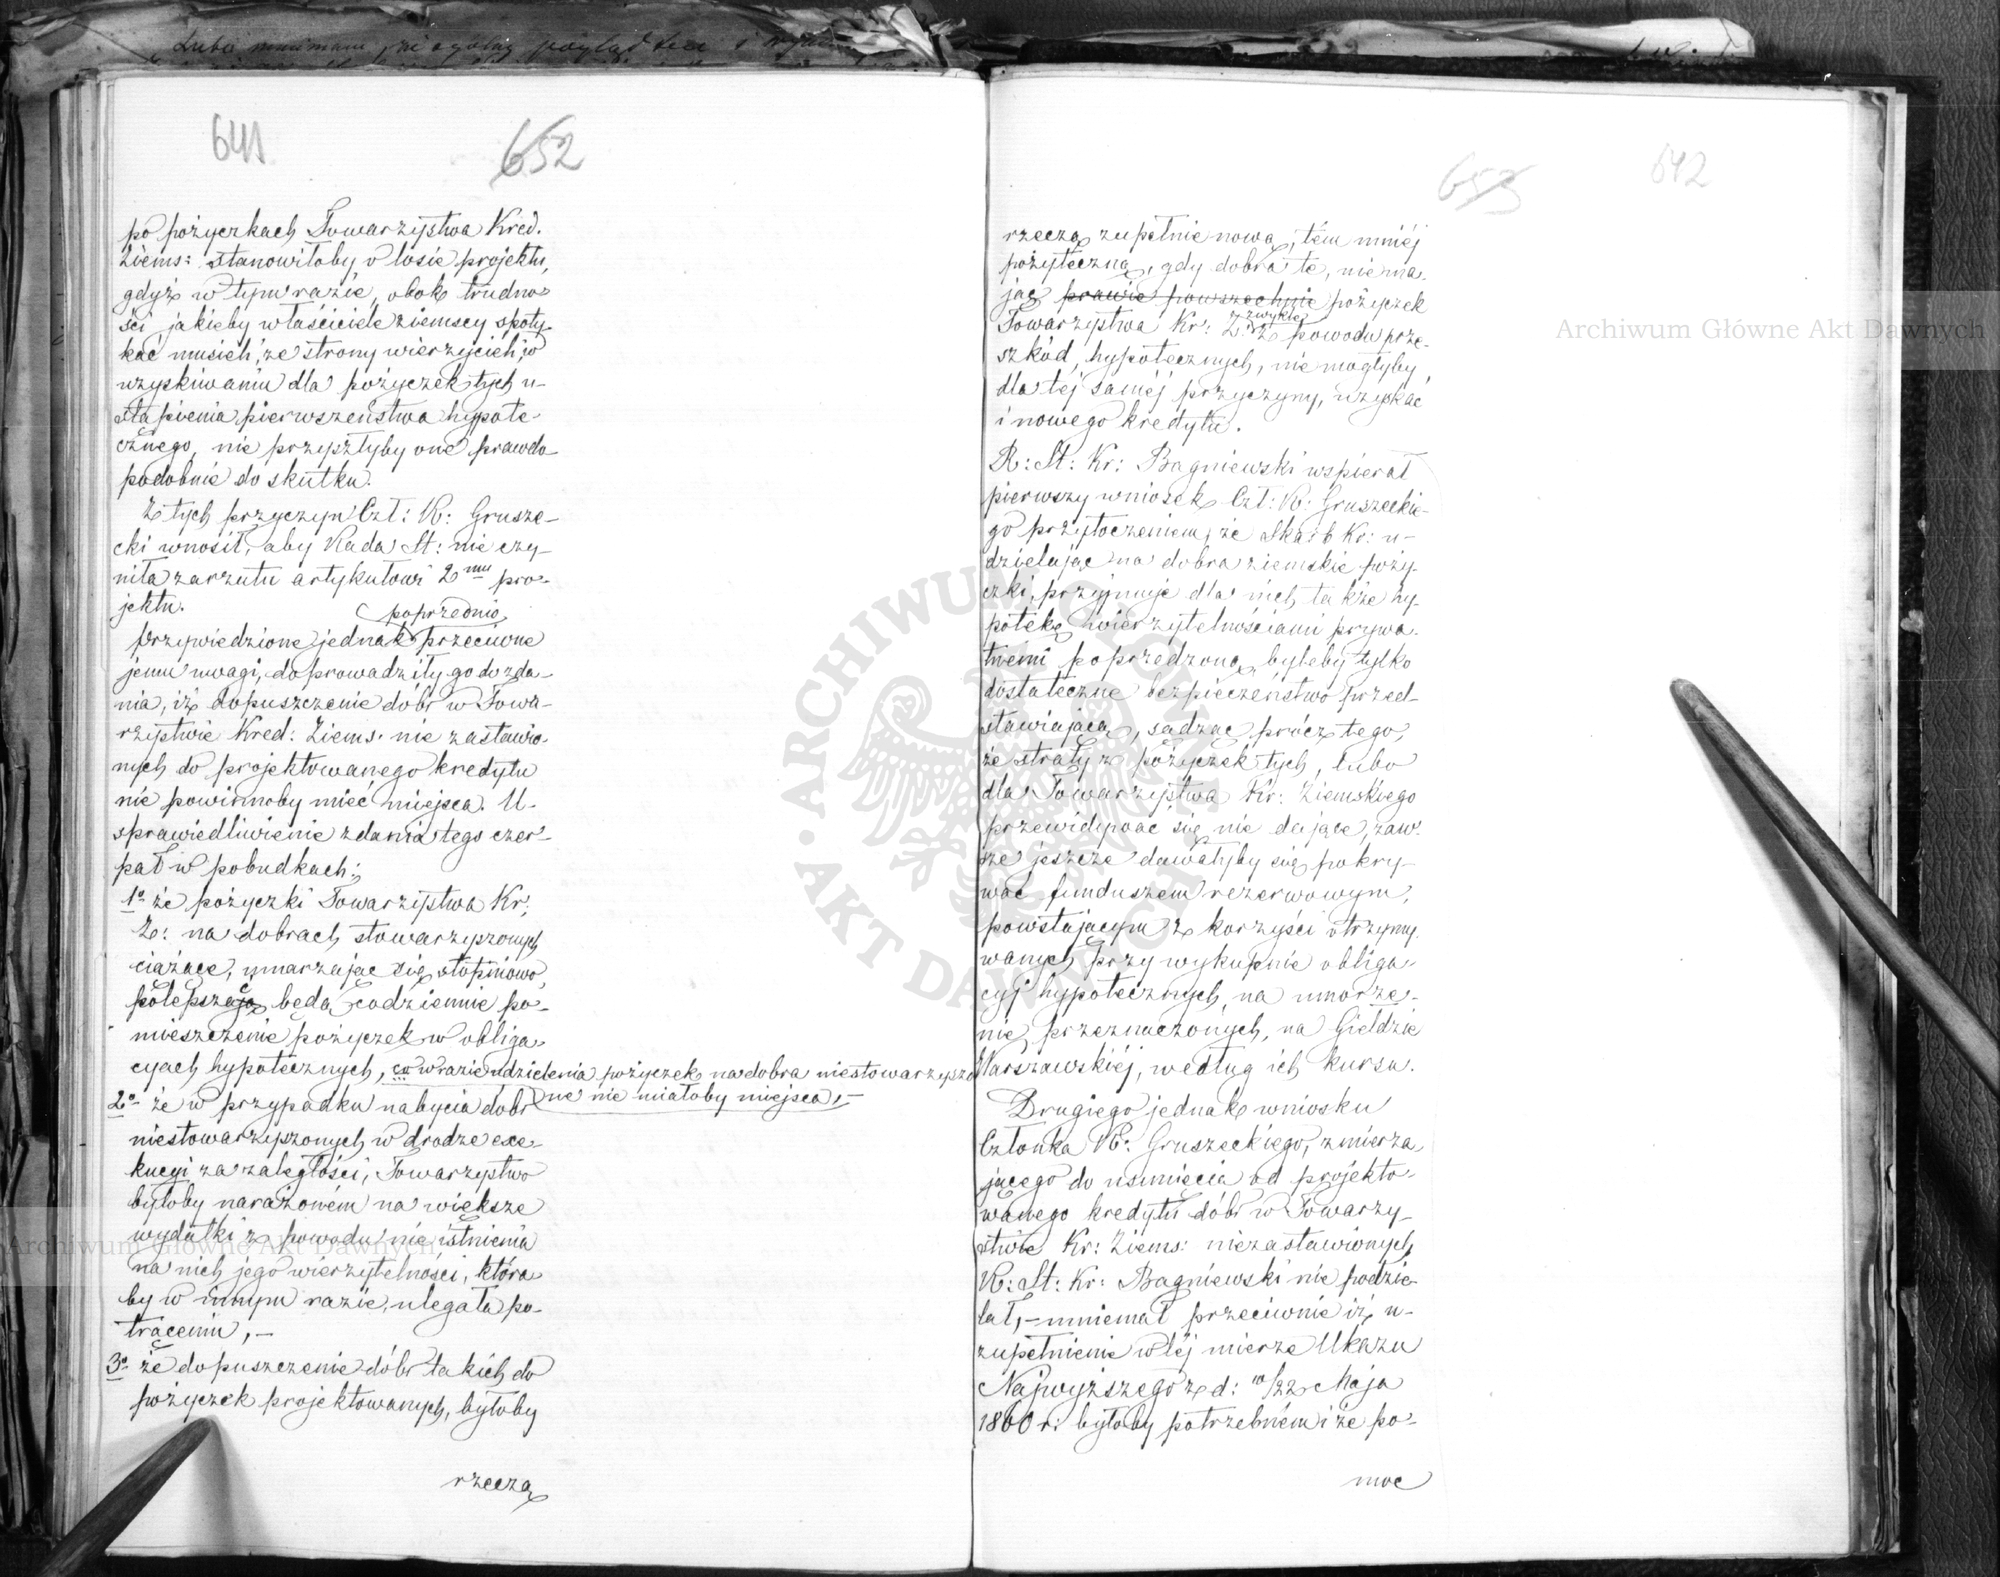 641
652
po pożyczkach Towarzystwa Kred.
Ziems: stanowiłoby o losie projektu,
gdyż w tym razie, obok trudno-
ści, jakieby właściciele ziemscy spoty-
kać musieli, ze strony wierzycieli, w
uzyskiwaniu dla pożyczek tych u-
stąpienia pierwszeństwa hypote-
cznego, nie przyszłyby one prawdo-
podobnie do skutku.
Z tych przyczyn Czł: R: Grusze-
cki wnosił, aby Rada St: nie czy-
niła zarzutu artykułowi 2mu pro-
jektu.
poprzednio
Przywiedzione jednak przeciwne
jemu uwagi, doprowadziły go do zda-
nia, iż dopuszczenie dóbr w Towa-
rzystwie Kred: Ziems. nie zastawio-
nych do projektowanego kredytu
nie powinnoby mieć miejsca. U-
sprawiedliwienie zdania tego czer-
pał w pobudkach:
1o że pożyczki Towarzystwa Kr:
Z: na dobrach stowarzyszonych
ciążące, umarzając się stopniowo,
polepszać będą codziennie po-
mieszczenie pożyczek w obliga-
cyach hypotecznych, co w razie udzielenia pożyczek na dobra niestowarzyszo-
ne nie miałoby miejsca,-
2o że w przypadku nabycia dóbr
niestowarzyszonych w drodze exe-
kucyi za zaległości, Towarzystwo
byłoby narażonem na większe
wydatki z powodu nie istnienia
na nich jego wierzytelności, która
by w innym razie uległa po-
trąceniu,-
3o że dopuszczenie dóbr takich do
pożyczek projektowanych, byłoby
rzeczą
653
642
rzeczą zupełnie nową, tém mniéj
pożyteczną, gdy dobra te, nie ma-
jąc prawie powszechnie pożyczek
zwykle
Towarzystwa Kr: Z: z powodu prze-
szkód hypotecznych, nie mogłyby,
dla téj saméj przyczyny, uzyskać
i nowego kredytu.
R: St: Kr: Bagniewski wspierał
pierwszy wniosek Czł: R: Gruszeckie-
go przytoczeniem, że Skarb Kr: u-
dzielając na dobra ziemskie poży-
czki, przyjmuje dla nich także hy-
potekę wierzytelnościami prywa-
tnemi poprzedzoną, byleby tylko
dostateczne bezpieczeństwo przed-
stawiającą, sądząc prócz tego,
że straty z pożyczek tych, lubo
dla Towarzystwa Kr: Ziemskiego
przewidywać się nie dające, zaw-
sze jeszcze dawałyby się pokry-
wać funduszem rezerwowym,
powstającym z korzyści otrzymy-
wanych przy wykupnie obliga-
cyj hypotecznych, na umorze-
nie przeznaczonych, na Giełdzie
Warszawskiéj, według ich kursu.
Drugiego jednak wniosku
Członka R: Gruszeckiego, zmierza-
jącego do usunięcia od projekto-
wanego kredytu dóbr w Towarzy-
stwie Kr: Ziems: niezastawionych,
R: St: Kr: Bagniewski nie podzie-
lał,- mniemał przeciwnie iż u-
zupełnienie w téj mierze Ukazu
Najwyższego z d: 10/22 Maja
1860 r. byłoby potrzebném i że po-
moc
Archiwum Główne Akt Dawnych
Archiwum Główne Akt Dawnych
ARCHIWUM GŁÓWNE AKT DAWNYCH